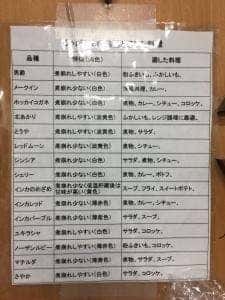 品種 適した料理
男爵 煮崩れしやすい(白色) 粉ふきいも、ふかしいも。
メークイン 煮崩れ少ない(黄色) カレー。
ホッカイコガネ 煮崩れ少ない(黄色) 煮物、カレー、シチュー、コロッケ。
北あかり 煮崩れしやすい(黄色) ふかしいも、レンジ調理に最適。
とうや 煮崩れ少ない(黄色) 煮物、サラダ。
レッドムーン 煮崩れ少ない(黄色) 煮物、シチュー。
シンシア 煮崩れ少ない サラダ、煮物、シチュー。
シェリー 煮崩れ少ない 煮物、カレー、ポトフ。
インカのめざめ 煮崩れ少なく低温貯蔵後は スープ、フライ、スイートポテト。
インカレッド 煮崩れ少ない 煮物、カレー、シチュー。
インカパープル 煮崩れ少ない サラダ、スープ。
ユキラシャ 煮崩れ少ない(白色) サラダ、コロッケ。
ノーザンルビー 煮崩れ少ない 粉ふきいも、コロッケ。
マチルダ 煮崩れ少ない 煮物、サラダ、スープ。
さやか 煮崩れ少ない(白色) サラダ、コロッケ。